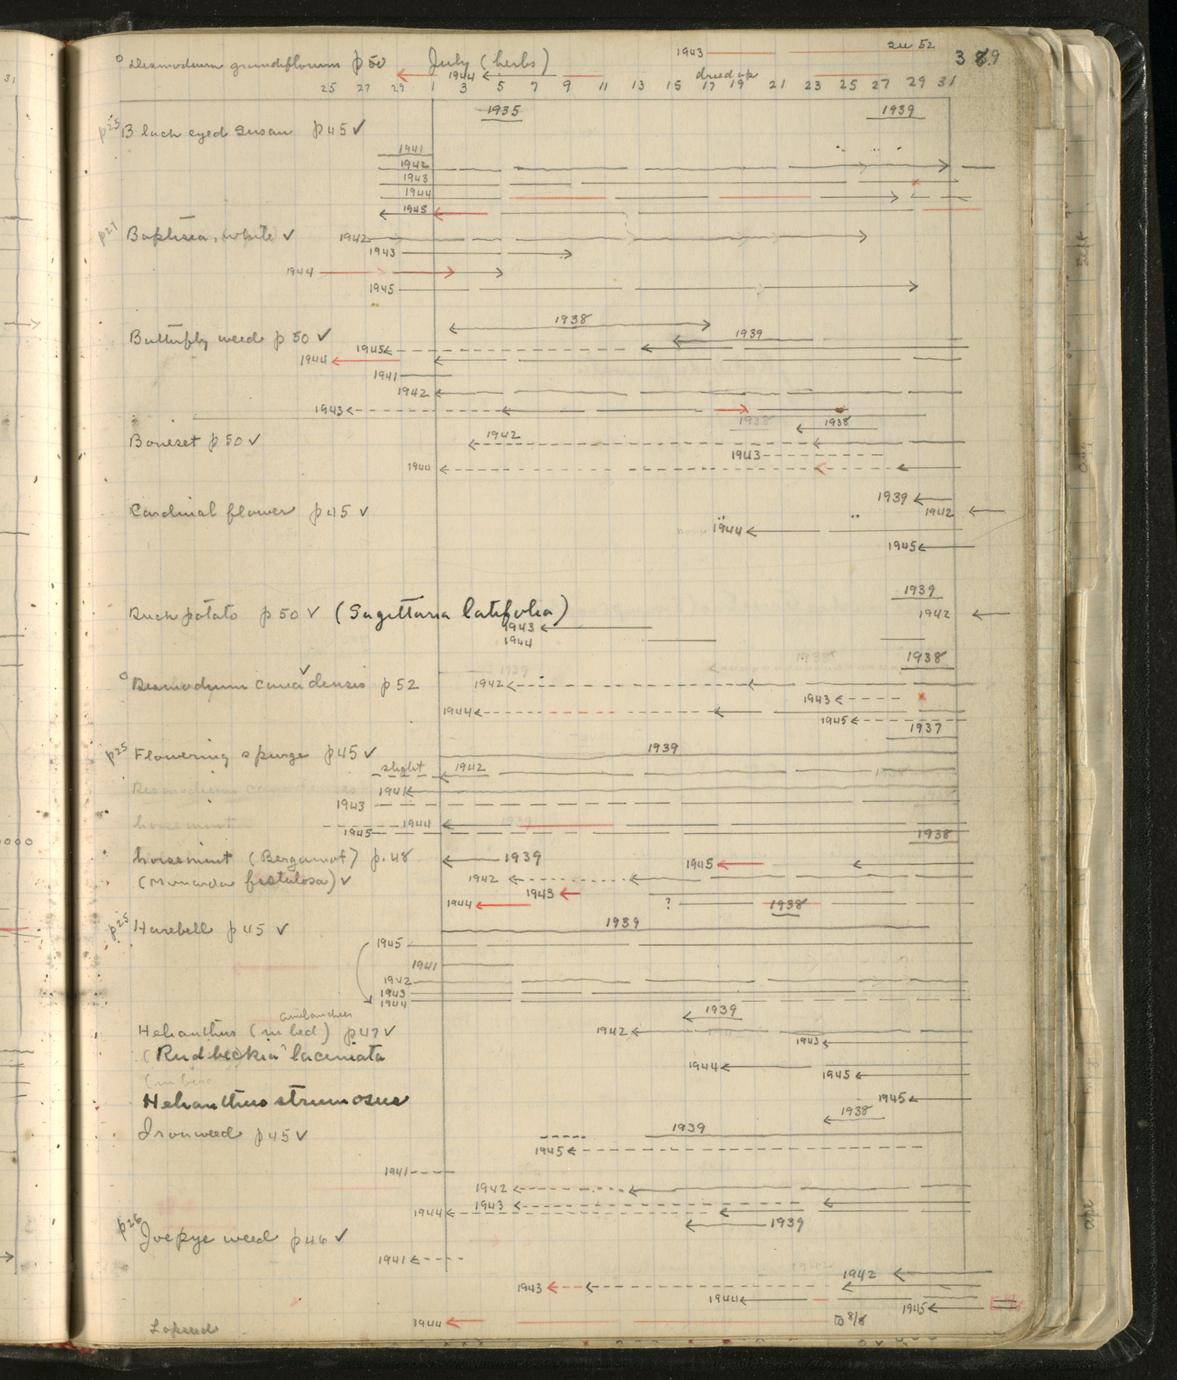 31
1943 see 52 389
° Desmodium grandiflorum p 50 July (herbs)
1944 dried up
25 27 29 1 3 5 7 9 11 13 15 17 19 21 23 25 27 29 31
1935 1939
p25 Black eyed Susan p 45 ✓
1941
1942
1943
1944
1945
p27 Baptisia, white ✓ 1942
1943
1944
1945
1938
Butterfly weed p 50 ✓ 1939
1945
1944
1941
1942
1943
1938 1938
Boneset p 50 ✓ 1942
1943
1944
1939
Cardinal flower p 45 ✓ 1942
1944
1945
1939
Duck potato p 50 ✓ (Sagittaria latifolia) 1942
1943
1944
1939 1938 1938
° Desmodium canadensis ✓ p 52 1942
1943
1944
1945
1937
p25 Flowering spurge p 45 ✓ 1939
slight 1942
Desmodium canadensis 1941
1943
horsemint 1944 1939
1945 1938
horsemint (Bergamot) p. 48 1939 1945
(Monarda fistulosa) ✓ 1942
1943
1944 ? 1938
p25 Harebell p 45 ✓ 1939
1945
1941
1942
1943
1944
1939
Helianthus (in bed) p 47 ✓ 1942
1943
(Rudbeckia laciniata
1944
1945
Helianthus strumosus 1945
1938
Ironweed p 45 ✓ 1939
1945
1941
1942
1943
1944
1939
p26 Joe pye weed p 46 ✓
1941
1942
1943
1944
1945
Lopseed 1944 to 8/8